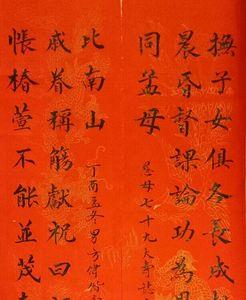 撫子女俱各長成
晨昏督課論功為
同孟母
岳母七十九大壽誌
比南山
丁酉孟冬男方偉
戚眷稱觴獻祝曰
帳椿萱不能並茂